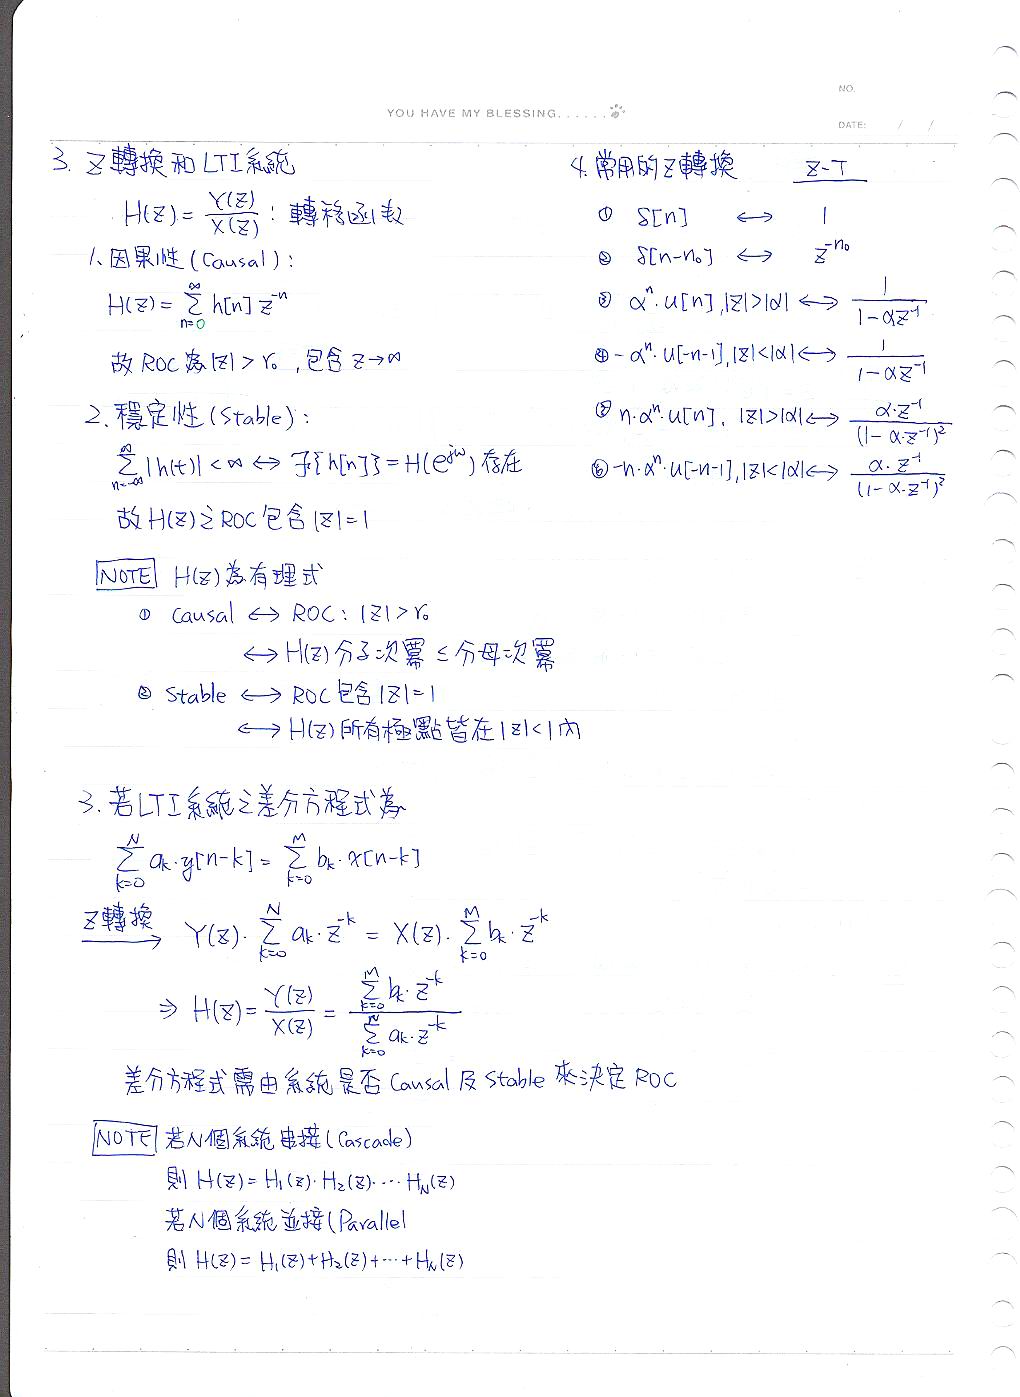 NO.
YOU HAVE MY BLESSING......
DATE: / /
3. Z轉換和LTI系統
H(z) = Y(z)/X(z) : 轉移函數
1. 因果性 (Causal) :
H(z) = ∑_{n=0}^{∞} h[n] z^{-n}
故 ROC 為 |z| > r₀ , 包含 z→∞
2. 穩定性 (Stable) :
∑_{n=-∞}^{∞} |h(t)| < ∞ ↔ ℱ{h[n]} = H(e^{jw}) 存在
故 H(z) 之 ROC 包含 |z| = 1
NOTE H(z) 為有理式
① Causal ↔ ROC : |z| > r₀
↔ H(z) 分子次冪 ≤ 分母次冪
② Stable ↔ ROC 包含 |z| = 1
↔ H(z) 所有極點皆在 |z| < 1 內
3. 若 LTI 系統之差分方程式為
∑_{k=0}^{N} a_k · y[n-k] = ∑_{k=0}^{M} b_k · x[n-k]
Z轉換→ Y(z) · ∑_{k=0}^{N} a_k · z^{-k} = X(z) · ∑_{k=0}^{M} b_k · z^{-k}
⇒ H(z) = Y(z)/X(z) = (∑_{k=0}^{M} b_k · z^{-k})/(∑_{k=0}^{N} a_k · z^{-k})
差分方程式需由系統是否 Causal 及 Stable 來決定 ROC
NOTE 若N個系統串接 (Cascade)
則 H(z) = H₁(z) · H₂(z) · ⋯ H_N(z)
若N個系統並接 (Parallel
則 H(z) = H₁(z) + H₂(z) + ⋯ + H_N(z)
4. 常用的Z轉換 Z-T
① δ[n] ↔ 1
② δ[n-n₀] ↔ z^{-n₀}
③ α^n · u[n] , |z| > |α| ↔ 1/(1-αz^{-1})
④ -α^n · u[-n-1] , |z| < |α| ↔ 1/(1-αz^{-1})
⑤ n · α^n · u[n] , |z| > |α| ↔ (α · z^{-1})/(1-α · z^{-1})^2
⑥ -n · α^n · u[-n-1] , |z| < |α| ↔ (α · z^{-1})/(1-α · z^{-1})^2